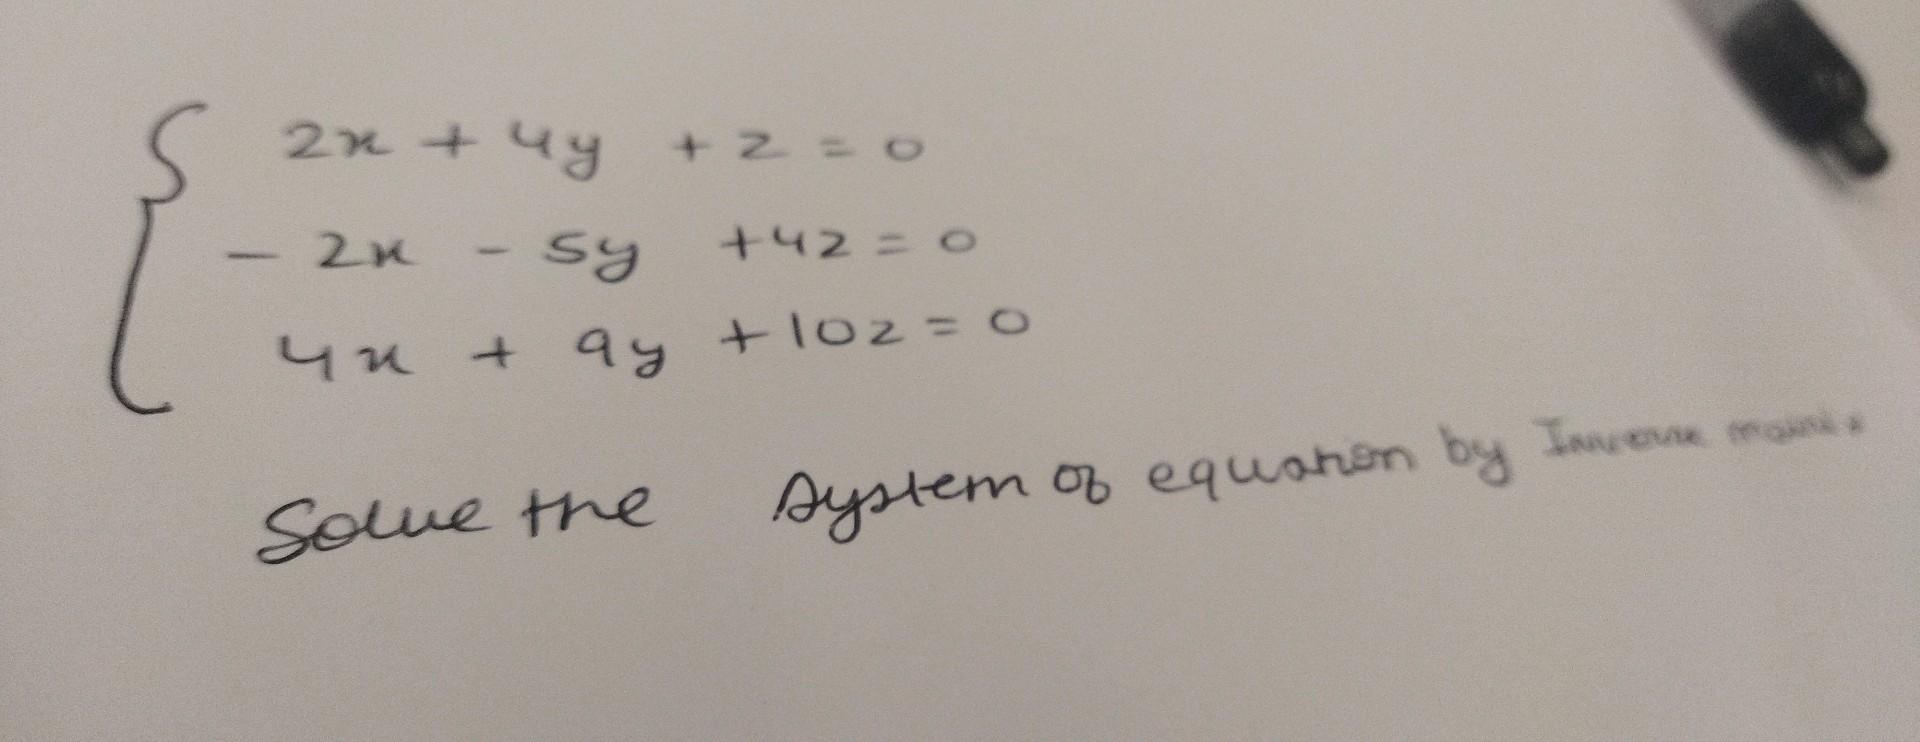 2x + 4y + z = 0
- 2x - 5y + 4z = 0
4x + 9y + 10z = 0
Solve the system of equation by Inverse matrix